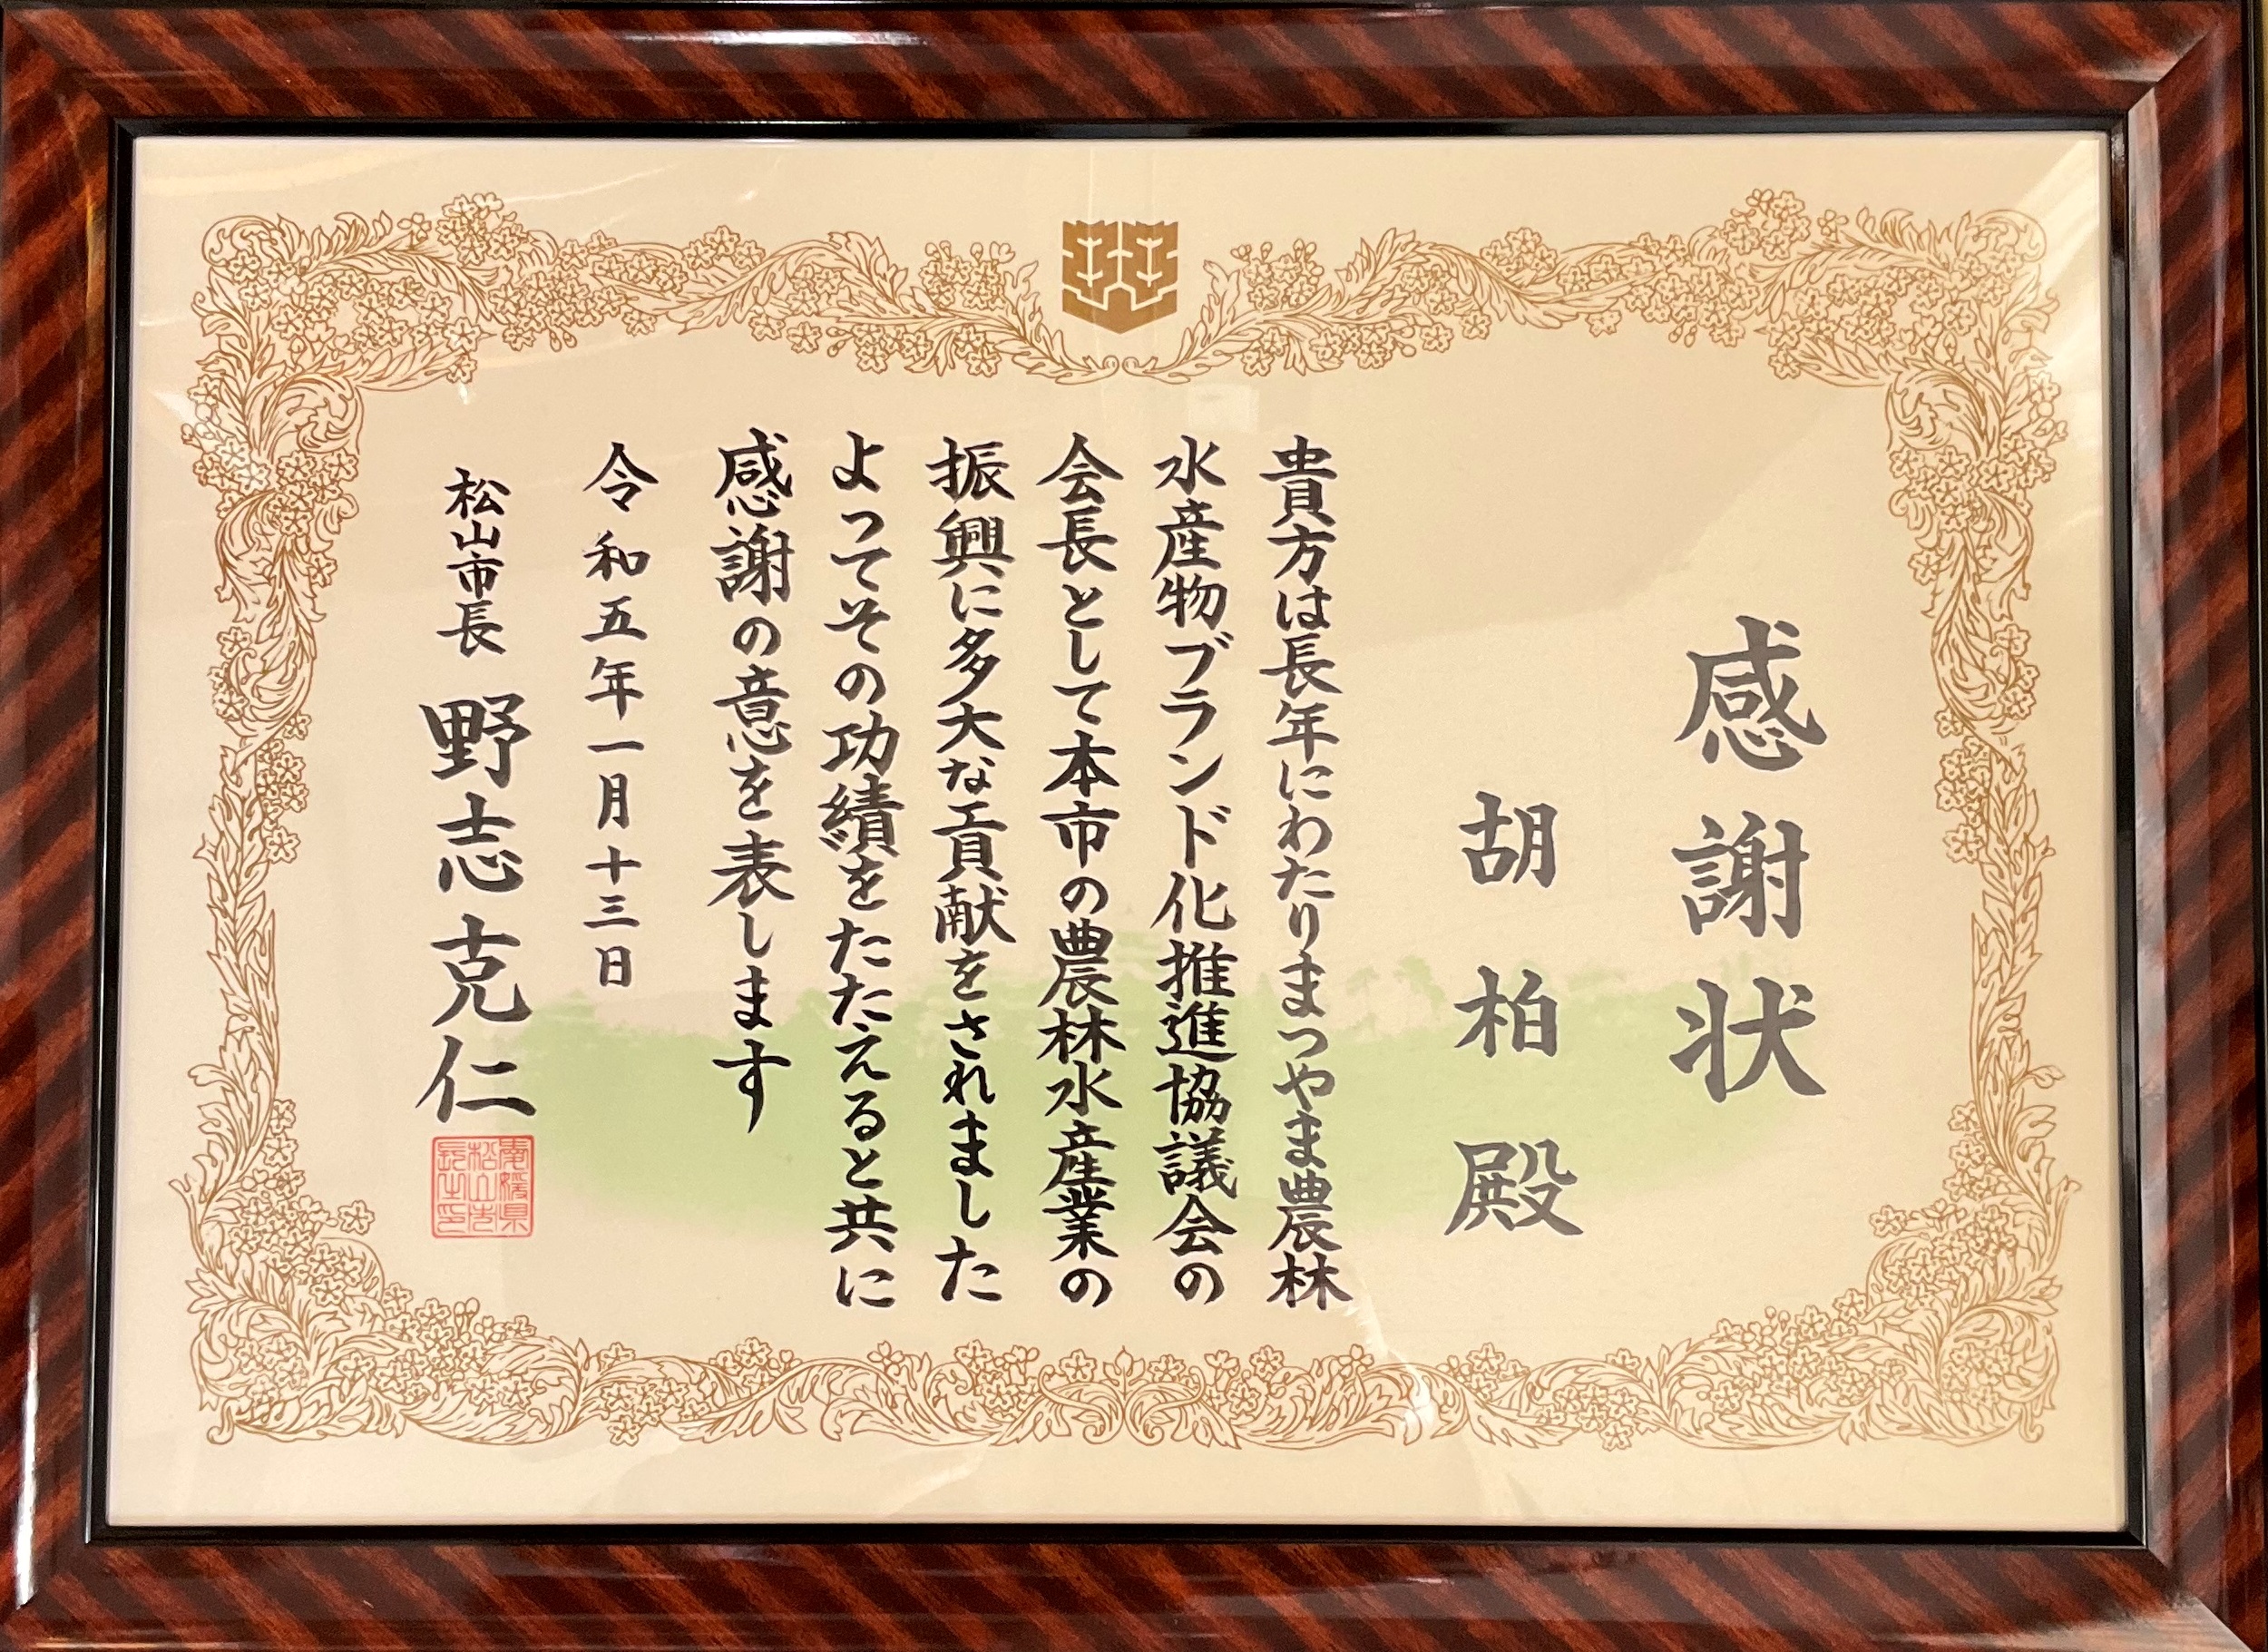 感謝状
胡柏殿
貴方は長年にわたりまつやま農林
水産物ブランド化推進協議会の
会長として本市の農林水産業の
振興に多大な貢献をされました
よってその功績をたたえると共に
感謝の意を表します
令和五年一月十三日
松山市長 野志克仁
愛媛県
松山市
長之印